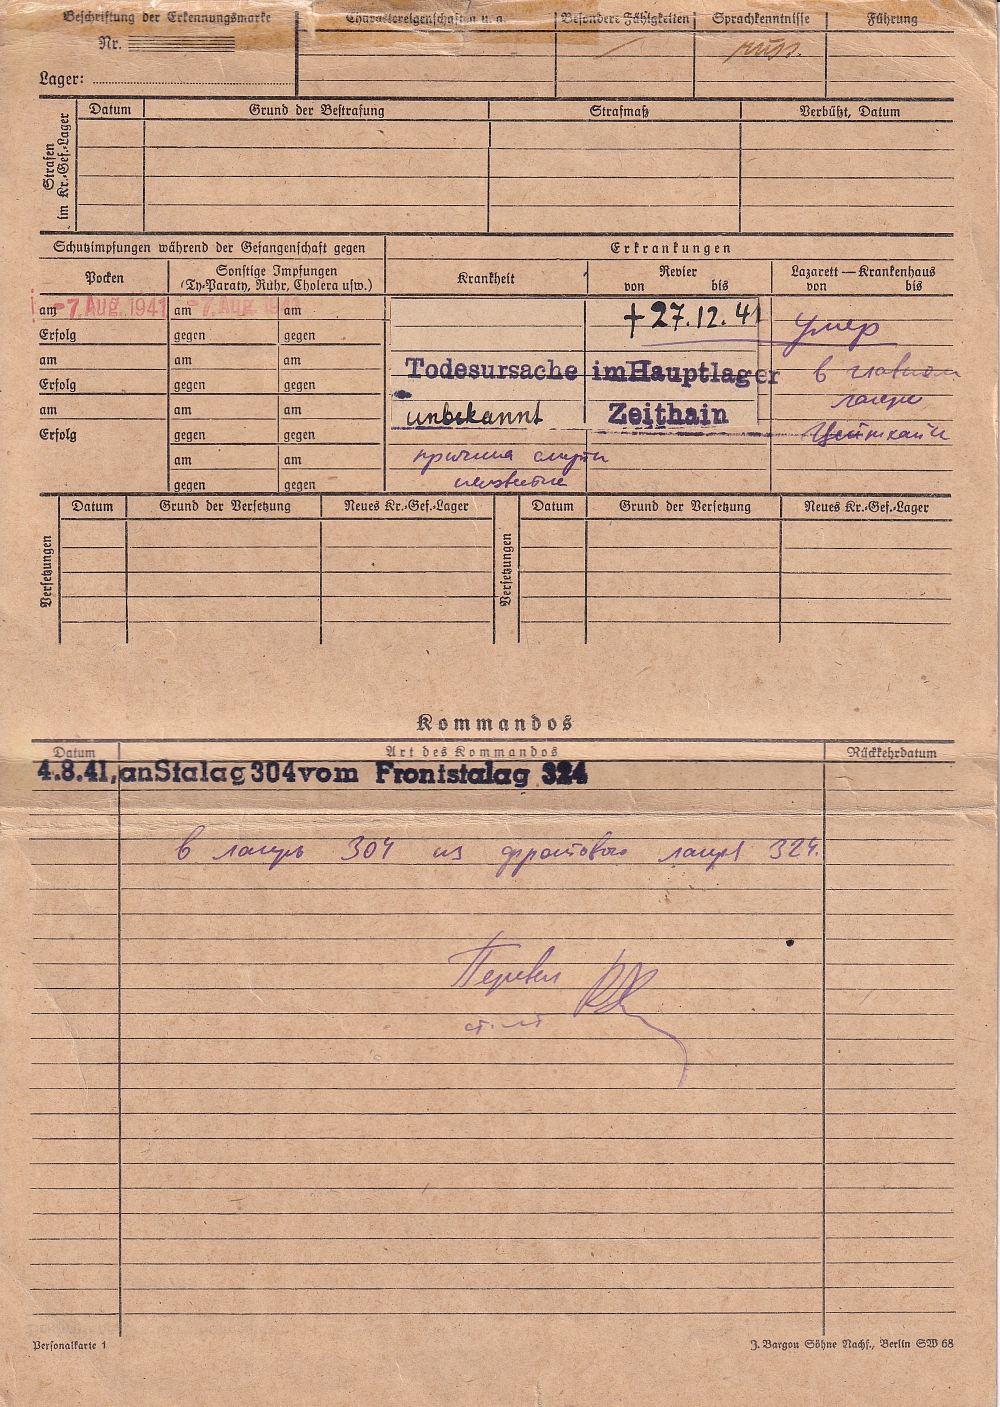 Beschriftung der Erkennungsmarke
Nr.
Lager:
Charaktereigenschaften u. a.
Besondere Fähigkeiten
Sprachkenntnisse
Führung
russ.
Strafen im Kr.-Gef.-Lager
Datum
Grund der Bestrafung
Strafmaß
Verbüßt, Datum
Schutzimpfungen während der Gefangenschaft gegen
Erkrankungen
Pocken
Sonstige Impfungen
(Ty-Paraty, Ruhr, Cholera usw.)
Krankheit
Revier
von bis
Lazarett — Krankenhaus
von bis
am -7. Aug. 1941 am -7. Aug. 1941 am
Erfolg gegen gegen
am am am
Erfolg gegen gegen
am am am
Erfolg gegen gegen
am am
gegen gegen
+ 27.12.41
умер
Todesursache im Hauptlager
в главном
лагере
unbekannt Zeithain
Цейтхайн
причина смерти
неизвестна
Versetzungen
Datum
Grund der Versetzung
Neues Kr.-Gef.-Lager
Versetzungen
Datum
Grund der Versetzung
Neues Kr.-Gef.-Lager
Kommandos
Datum
Art des Kommandos
Rückkehrdatum
4.8.41, an Stalag 304 vom Frontstalag 324
в лагерь 304 из фронтового лагеря 324.
Перевел
ст. лт
Personalkarte 1
J. Bargou Söhne Nachf., Berlin SW 68